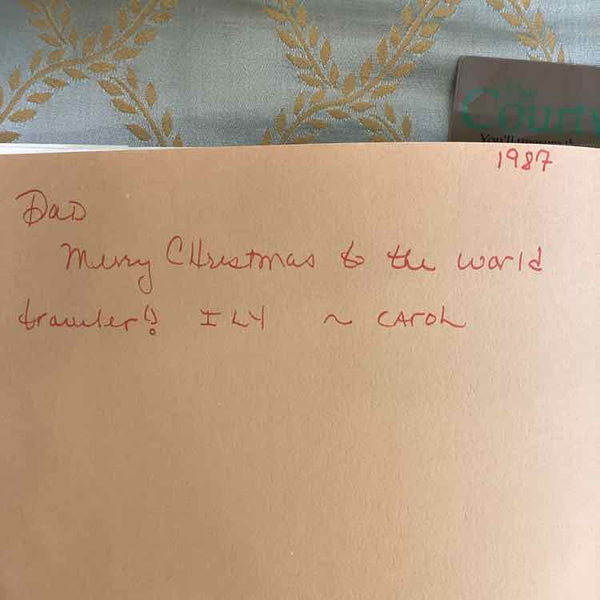 The
Courty
You'll
1987
Dad
Merry CHristmas to the world
traveler! ILY ~ CAROL